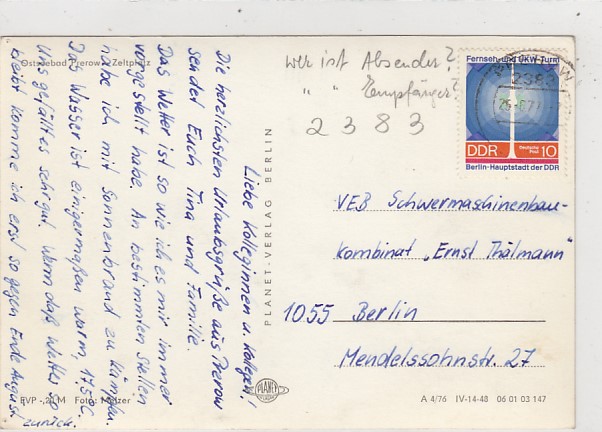 Ostseebad Prerow Zeltplatz
Liebe Kolleginnen u. Kollegen!
Die herzlichsten Urlaubsgrüße aus Prerow
sendet Euch Tina und Familie.
Das Wetter ist so wie ich es mir immer
vorgestellt habe. An bestimmten Stellen
habe ich mit Sonnenbrand zu kämpfen.
Das Wasser ist einigermaßen warm, 17,5°C.
Uns gefällt es sehr gut. Wenn daß Wetter so
bleibt komme ich erst so gegen Ende August
zurück.
EVP -,20 M Foto: Melzer
PLANET-VERLAG BERLIN
PLANET
wer ist Absender?
" " Empfänger?
2383
Fernseh- und UKW-Turm
DDR Deutsche Post 10
Berlin-Hauptstadt der DDR
2383
VEB Schwermaschinenbau-
Kombinat „Ernst Thälmann"
1055 Berlin
Mendelssohnstr. 27
A 4/76 IV-14-48 06 01 03 147